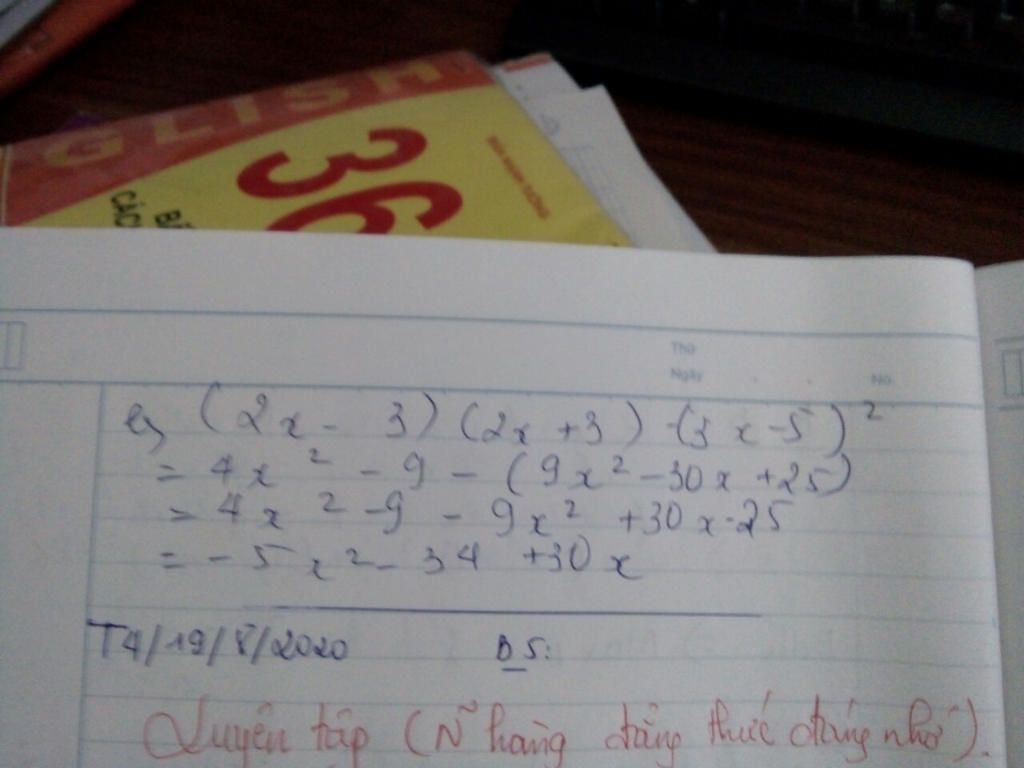 GLISH
36
BÍ
CÁC
Thứ
Ngày
No.
e, (2x - 3) (2x + 3) - (3x - 5)²
= 4x² - 9 - (9x² - 30x + 25)
= 4x² - 9 - 9x² + 30x - 25
= - 5x² - 34 + 30x
T4/19/8/2020 B5:
Luyện tập (Ñ hằng đẳng thức đáng nhớ).